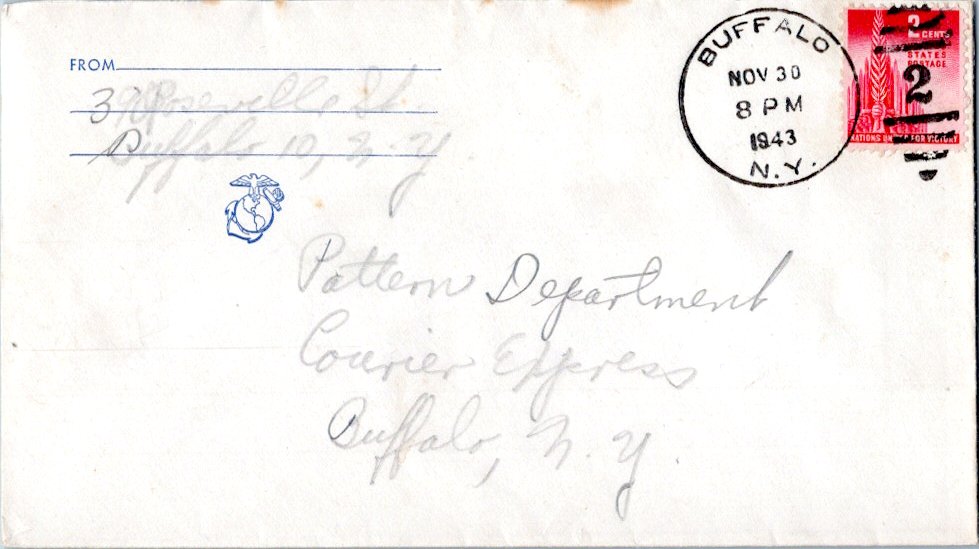 FROM
39 Roseville St
Buffalo 10, N.Y.
BUFFALO
NOV 30
8 PM
1943
N.Y.
2 CENTS
STATES
POSTAGE
2
NATIONS UNITED FOR VICTORY
Pattern Department
Courier Express
Buffalo, N.Y.